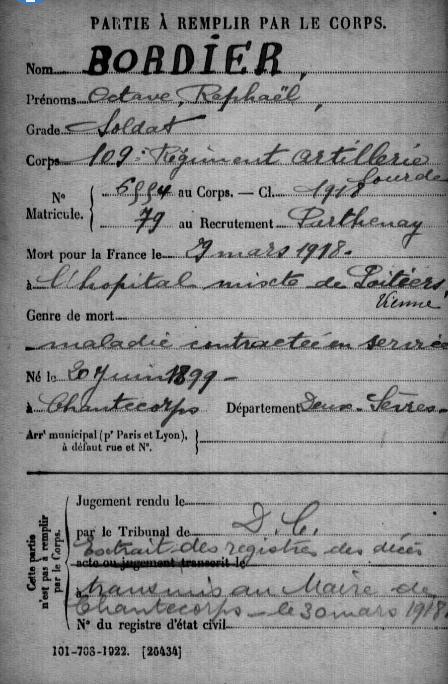 PARTIE À REMPLIR PAR LE CORPS.
Nom BORDIER,
Prénoms Octave, Raphaël,
Grade Soldat
Corps 109e Régiment artillerie
lourde
N° Matricule. { 5994 au Corps. — Cl. 1918
79 au Recrutement Parthenay
Mort pour la France le 29 mars 1918.
à l'hopital mixte de Poitiers
Vienne
Genre de mort
maladie contractée en service
Né le 20 juin 1899 -
à Chantecorps Département Deux-Sèvres-
Arrt municipal (pr Paris et Lyon), à défaut rue et N°. }
Cette partie n'est pas à remplir par le Corps.
Jugement rendu le
par le Tribunal de D. C.
Extrait des registres des décès
acte ou jugement transcrit le
à transmis au Maire de
Chantecorps - le 30 mars 1918.
N° du registre d'état civil
101-708-1922. [26434]